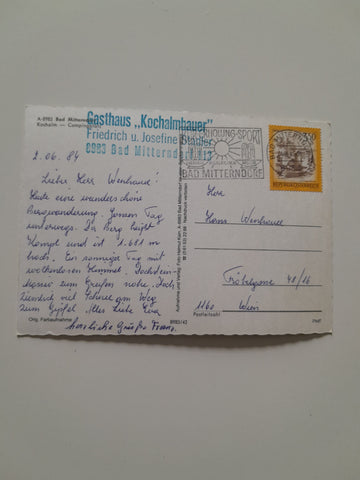 A-8983 Bad Mitterndorf
Kochalm — Camping
Gasthaus „Kochalmbauer"
Friedrich u. Josefine Stadler
8983 Bad Mitterndorf
ERHOLUNG-SPORT
BAD MITTERNDORF
3.50
REPUBLIK ÖSTERREICH
2.06.84
Lieber Herr
Heute eine wunderschöne
Bergwanderung. Tag
unterwegs. Der Berg heißt
Kampl und ist 1.681 m
hoch. Ein sonniger Tag mit
wolkenlosem Himmel. Dachstein-
zum Greifen nahe. Noch
ziemlich viel Schnee am Weg
zum Gipfel. Alles Liebe Eva
herzliche Grüße Franz
Herrn
Hans
Fröbelgasse 48/16
1160 Wien
Postleitzahl
Orig. Farbaufnahme
8983/43